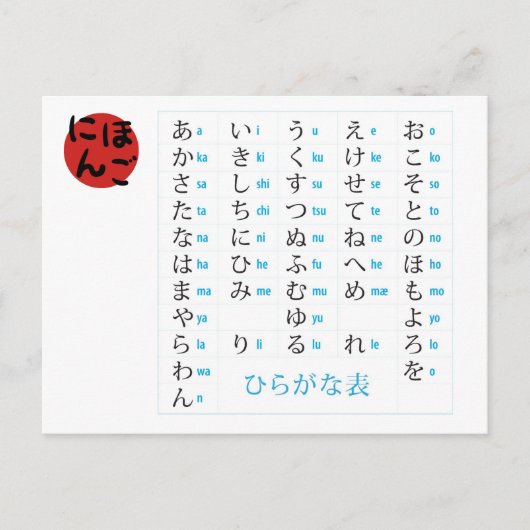 にほ
んご
あ a い i う u え e お o
か ka き ki く ku け ke こ ko
さ sa し shi す su せ se そ so
た ta ち chi つ tsu て te と to
な na に ni ぬ nu ね ne の no
は ha ひ he ふ fu へ he ほ ho
ま ma み me む mu め mæ も mo
や ya ゆ yu よ yo
ら la り li る lu れ le ろ lo
わ wa を o
ん n
ひらがな表